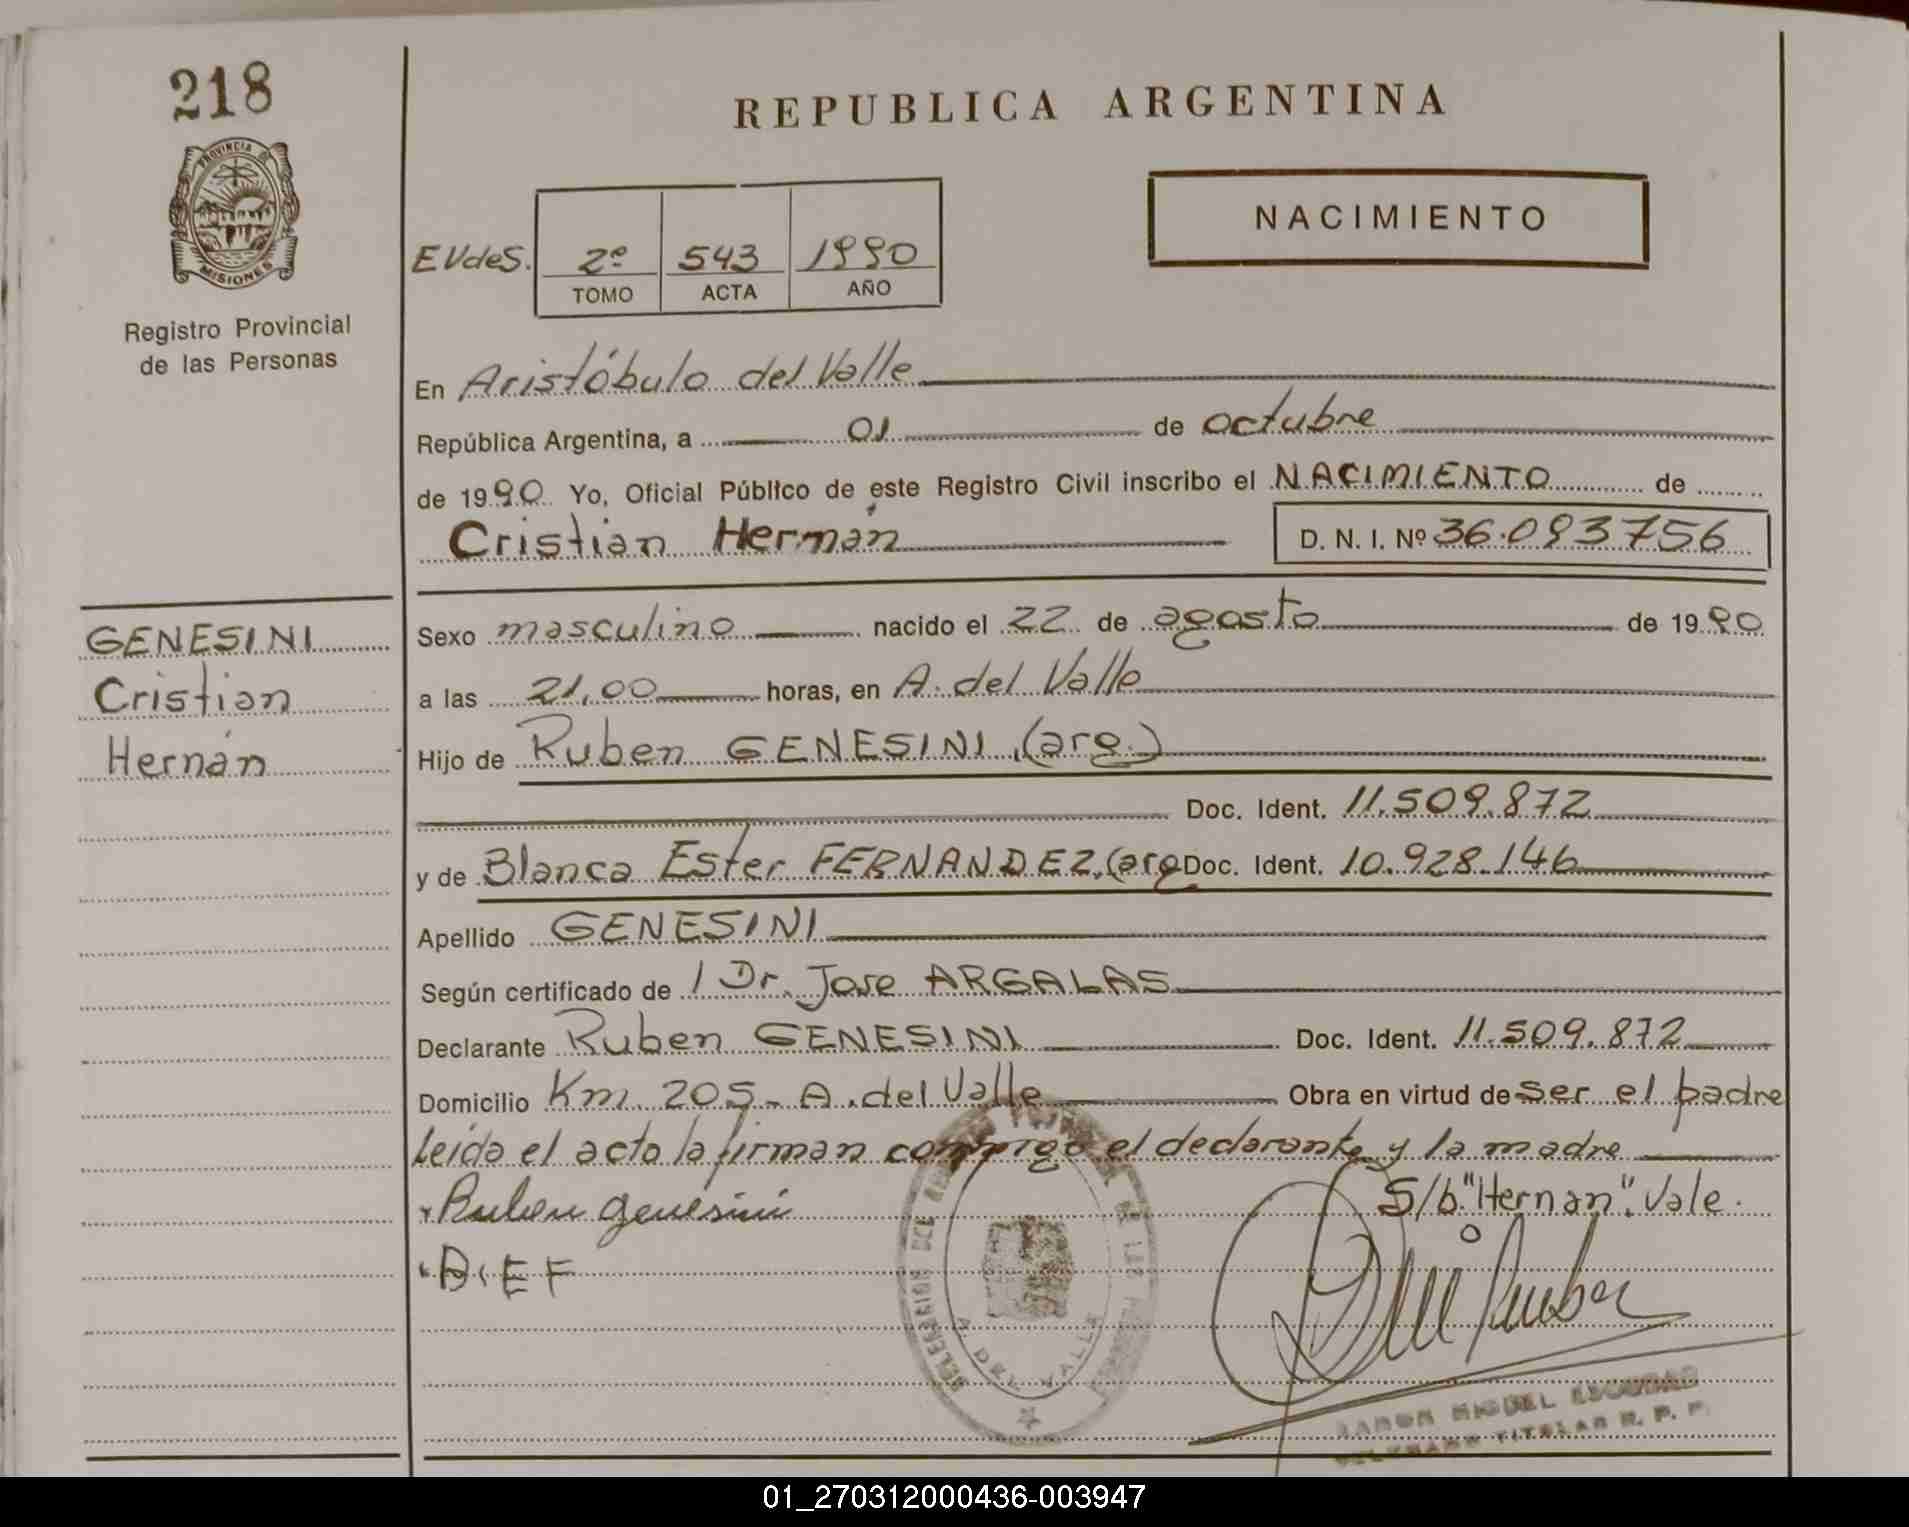 218
REPUBLICA ARGENTINA
PROVINCIA DE
MISIONES
Registro Provincial
de las Personas
NACIMIENTO
EVdeS. 2º 543 1990
TOMO ACTA AÑO
En Aristóbulo del Valle
República Argentina, a 01 de octubre
de 1990. Yo, Oficial Público de este Registro Civil inscribo el NACIMIENTO de
Cristian Hernán D. N. I. Nº 36.093756
GENESINI
Cristian
Hernán
Sexo masculino nacido el 22 de agosto de 1990
a las 21,00 horas, en A. del Valle
Hijo de Ruben GENESINI, (arg.)
Doc. Ident. 11.509.872
y de Blanca Ester FERNANDEZ, (arg Doc. Ident. 10.928.146
Apellido GENESINI
Según certificado de / Dr. Jose ARGALAS
Declarante Ruben GENESINI Doc. Ident. 11.509.872
Domicilio Km. 205 - A. del Valle Obra en virtud de ser el padre
Leída el acta la firman conmigo el declarante y la madre
S/b "Hernan". Vale.
Ruben Genesini
B. E F
A. DEL VALLE
RAMON MIGUEL ESCOBAR
TITULAR R. P. P.
01_270312000436-003947